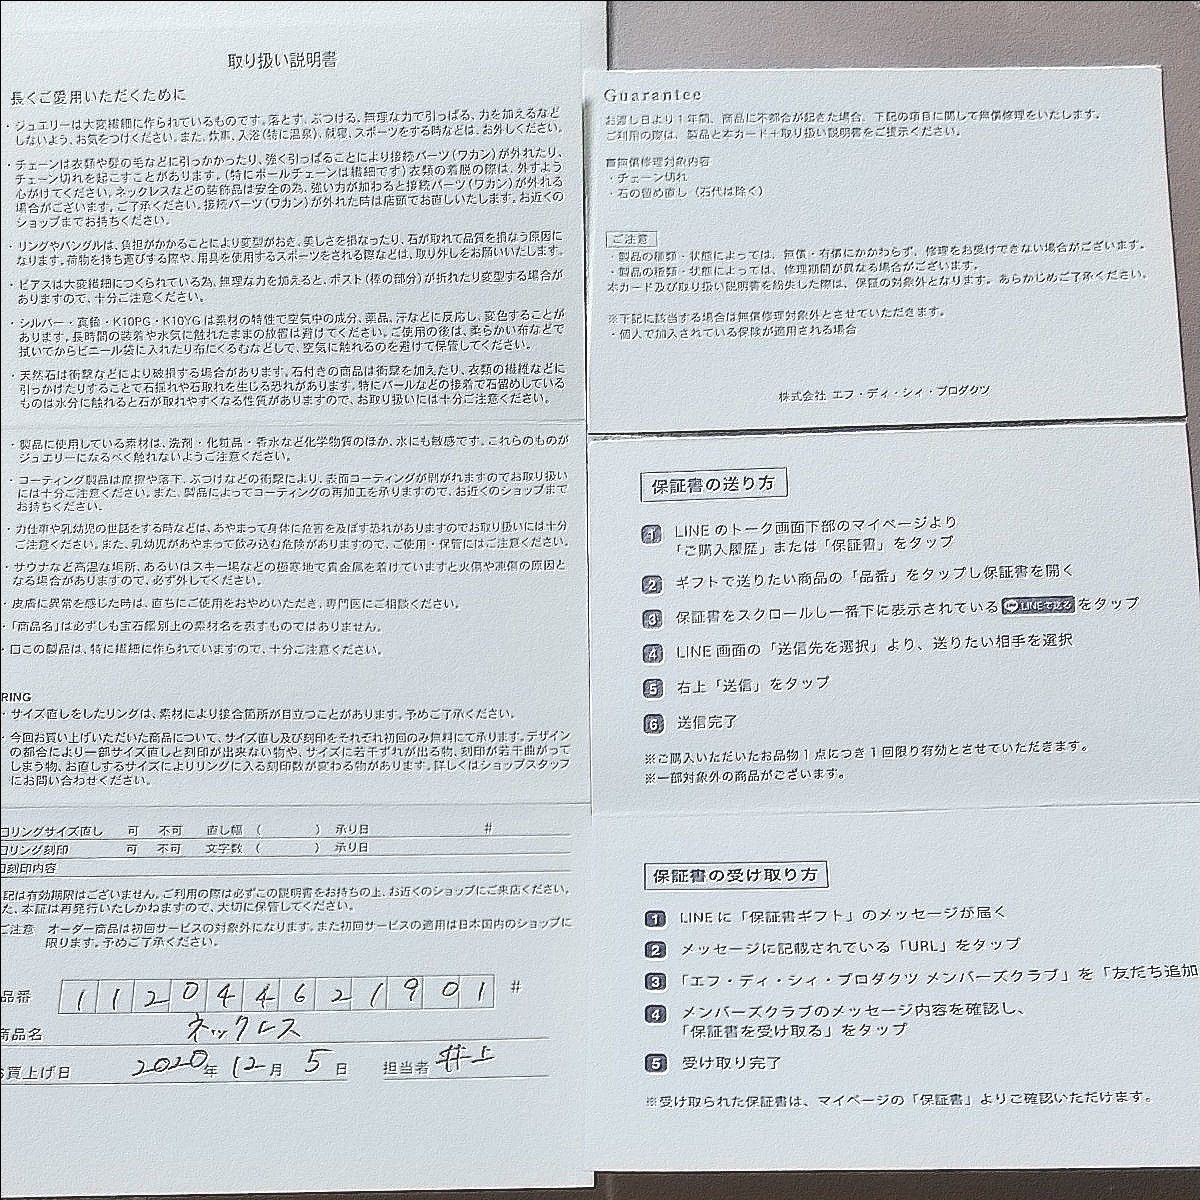 取り扱い説明書
長くご愛用いただくために
・ジュエリーは大変繊細に作られているものです。落とす、ぶつける、無理な力で引っぱる、力を加えるなど
しないよう、お気をつけください。また、炊事、入浴(特に温泉)、就寝、スポーツをする時などは、お外しください。
・チェーンは衣類や髪の毛などに引っかかったり、強く引っぱることにより接続パーツ(ワカン)が外れたり、
チェーン切れを起こすことがあります。(特にボールチェーンは繊細です)衣類の着脱の際は、外すよう
心がけてください。ネックレスなどの装飾品は安全の為、強い力が加わると接続パーツ(ワカン)が外れる
場合がございます。ご了承ください。接続パーツ(ワカン)が外れた時は店頭でお直しいたします。お近くの
ショップまでお持ちください。
・リングやバングルは、負担がかかることにより変型がおき、美しさを損なったり、石が取れて品質を損なう原因に
なります。荷物を持ち運びする際や、用具を使用するスポーツをされる際などは、取り外しをお願いいたします。
・ピアスは大変繊細につくられている為、無理な力を加えると、ポスト(棒の部分)が折れたり変型する場合が
ありますので、十分ご注意ください。
・シルバー・真鍮・K10PG・K10YGは素材の特性で空気中の成分、薬品、汗などに反応し、変色することが
あります。長時間の装着や水気に触れたままの放置は避けてください。ご使用の後は、柔らかい布などで
拭いてからビニール袋に入れたり布にくるむなどして、空気に触れるのを避けて保管してください。
・天然石は衝撃などにより破損する場合があります。石付きの商品は衝撃を加えたり、衣類の繊維などに
引っかけたりすることで石揺れや石取れを生じる恐れがあります。特にパールなどの接着で石留めしている
ものは水分に触れると石が取れやすくなる性質がありますので、お取り扱いには十分ご注意ください。
・製品に使用している素材は、洗剤・化粧品・香水など化学物質のほか、水にも敏感です。これらのものが
ジュエリーになるべく触れないようご注意ください。
・コーティング製品は摩擦や落下、ぶつけなどの衝撃により、表面コーティングが剥がれますのでお取り扱い
には十分ご注意ください。また、製品によってコーティングの再加工を承りますので、お近くのショップまで
お持ちください。
・力仕事や乳幼児の世話をする時などは、あやまって身体に危害を及ぼす恐れがありますのでお取り扱いには十分
ご注意ください。また、乳幼児があやまって飲み込む危険がありますので、ご使用・保管にはご注意ください。
・サウナなど高温な場所、あるいはスキー場などの極寒地で貴金属を着けていますと火傷や凍傷の原因と
なる場合がありますので、必ず外してください。
・皮膚に異常を感じた時は、直ちにご使用をおやめいただき、専門医にご相談ください。
・「商品名」は必ずしも宝石鑑別上の素材名を表すものではありません。
・口この製品は、特に繊細に作られていますので、十分ご注意ください。
RING
・サイズ直しをしたリングは、素材により接合箇所が目立つことがあります。予めご了承ください。
・今回お買い上げいただいた商品について、サイズ直し及び刻印をそれぞれ初回のみ無料にて承ります。デザイン
の都合により一部サイズ直しと刻印が出来ない物や、サイズに若干ずれが出る物、刻印が若干曲がって
しまう物、お直しするサイズによりリングに入る刻印数が変わる物があります。詳しくはショップスタッフ
にお問い合わせください。
口リングサイズ直し 可 不可 直し幅 ( ) 承り日 #
口リング刻印 可 不可 文字数 ( ) 承り日
刻印内容
記は有効期限はございません。ご利用の際は必ずこの説明書をお持ちの上、お近くのショップにご来店ください。
た、本証は再発行いたしかねますので、大切に保管してください。
ご注意 オーダー商品は初回サービスの対象外になります。また初回サービスの適用は日本国内のショップに
限ります。予めご了承ください。
品番 112044621901 #
商品名 ネックレス
買上げ日 2020年 12月 5日 担当者 井上
Guarantee
お渡し日より1年間、商品に不都合が起きた場合、下記の項目に関して無償修理をいたします。
ご利用の際は、製品と本カード+取り扱い説明書をご提示ください。
■無償修理対象内容
・チェーン切れ
・石の留め直し(石代は除く)
ご注意
・製品の種類・状態によっては、無償・有償にかかわらず、修理をお受けできない場合がございます。
・製品の種類・状態によっては、修理期間が異なる場合がございます。
本カード及び取り扱い説明書を紛失した際は、保証の対象外となります。あらかじめご了承ください。
※下記に該当する場合は無償修理対象外とさせていただきます。
・個人で加入されている保険が適用される場合
株式会社 エフ・ディ・シィ・プロダクツ
保証書の送り方
1 LINEのトーク画面下部のマイページより
「ご購入履歴」または「保証書」をタップ
2 ギフトで送りたい商品の「品番」をタップし保証書を開く
3 保証書をスクロールし一番下に表示されている LINEで送る をタップ
4 LINE画面の「送信先を選択」より、送りたい相手を選択
5 右上「送信」をタップ
6 送信完了
※ご購入いただいたお品物1点につき1回限り有効とさせていただきます。
※一部対象外の商品がございます。
保証書の受け取り方
1 LINEに「保証書ギフト」のメッセージが届く
2 メッセージに記載されている「URL」をタップ
3 「エフ・ディ・シィ・プロダクツ メンバーズクラブ」を「友だち追加
4 メンバーズクラブのメッセージ内容を確認し、
「保証書を受け取る」をタップ
5 受け取り完了
※受け取られた保証書は、マイページの「保証書」よりご確認いただけます。